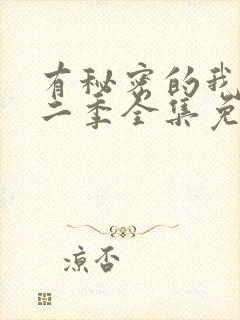 有秘密的我
二季全集免
凉否